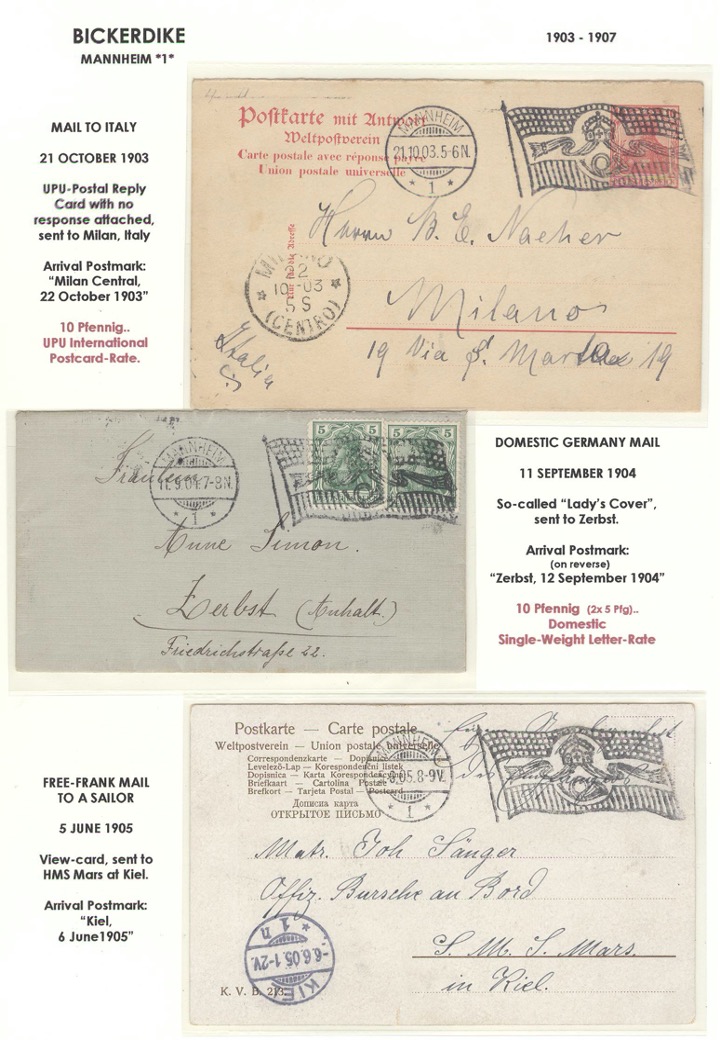 BICKERDIKE
MANNHEIM *1*
1903 - 1907
MAIL TO ITALY
21 OCTOBER 1903
UPU-Postal Reply
Card with no
response attached,
sent to Milan, Italy
Arrival Postmark:
“Milan Central,
22 October 1903”
10 Pfennig..
UPU International
Postcard-Rate.
Postkarte mit Antwort
Weltpostverein
Carte postale avec réponse payée
Union postale universelle
MANNHEIM
21.10.03.5-6N.
1
Herrn B. E. Naeher
Milano
19 Via 19
Italia
MILANO
10-03
5 S
(CENTRO)
DOMESTIC GERMANY MAIL
11 SEPTEMBER 1904
So-called “Lady’s Cover”,
sent to Zerbst.
Arrival Postmark:
(on reverse)
“Zerbst, 12 September 1904”
10 Pfennig (2x 5 Pfg)..
Domestic
Single-Weight Letter-Rate
5 5 5 5
MANNHEIM
11.9.04.7-8N.
1
Fräulein
Anne Simon.
Zerbst (Anhalt.)
Friedrichstraße 22.
FREE-FRANK MAIL
TO A SAILOR
5 JUNE 1905
View-card, sent to
HMS Mars at Kiel.
Arrival Postmark:
“Kiel,
6 June1905”
Postkarte — Carte postale
Weltpostverein — Union postale universelle
Correspondenzkarte — Dopisnice
Levelező-Lap — Korespondenční lístek
Dopisnica — Karta Korespondencyjna
Briefkaart — Cartolina Postale
Brefkort — Tarjeta Postal — Postcard
Дописна карта
ОТКРЫТОЕ ПИСЬМО
MANNHEIM
.05.8-9V.
1
Matr. Joh Sänger
Offiz. Bursche an Bord
S. M. S. Mars.
in Kiel.
KIEL
-6.6.05.1-2V.
* 1 n
K. V. B. 213.